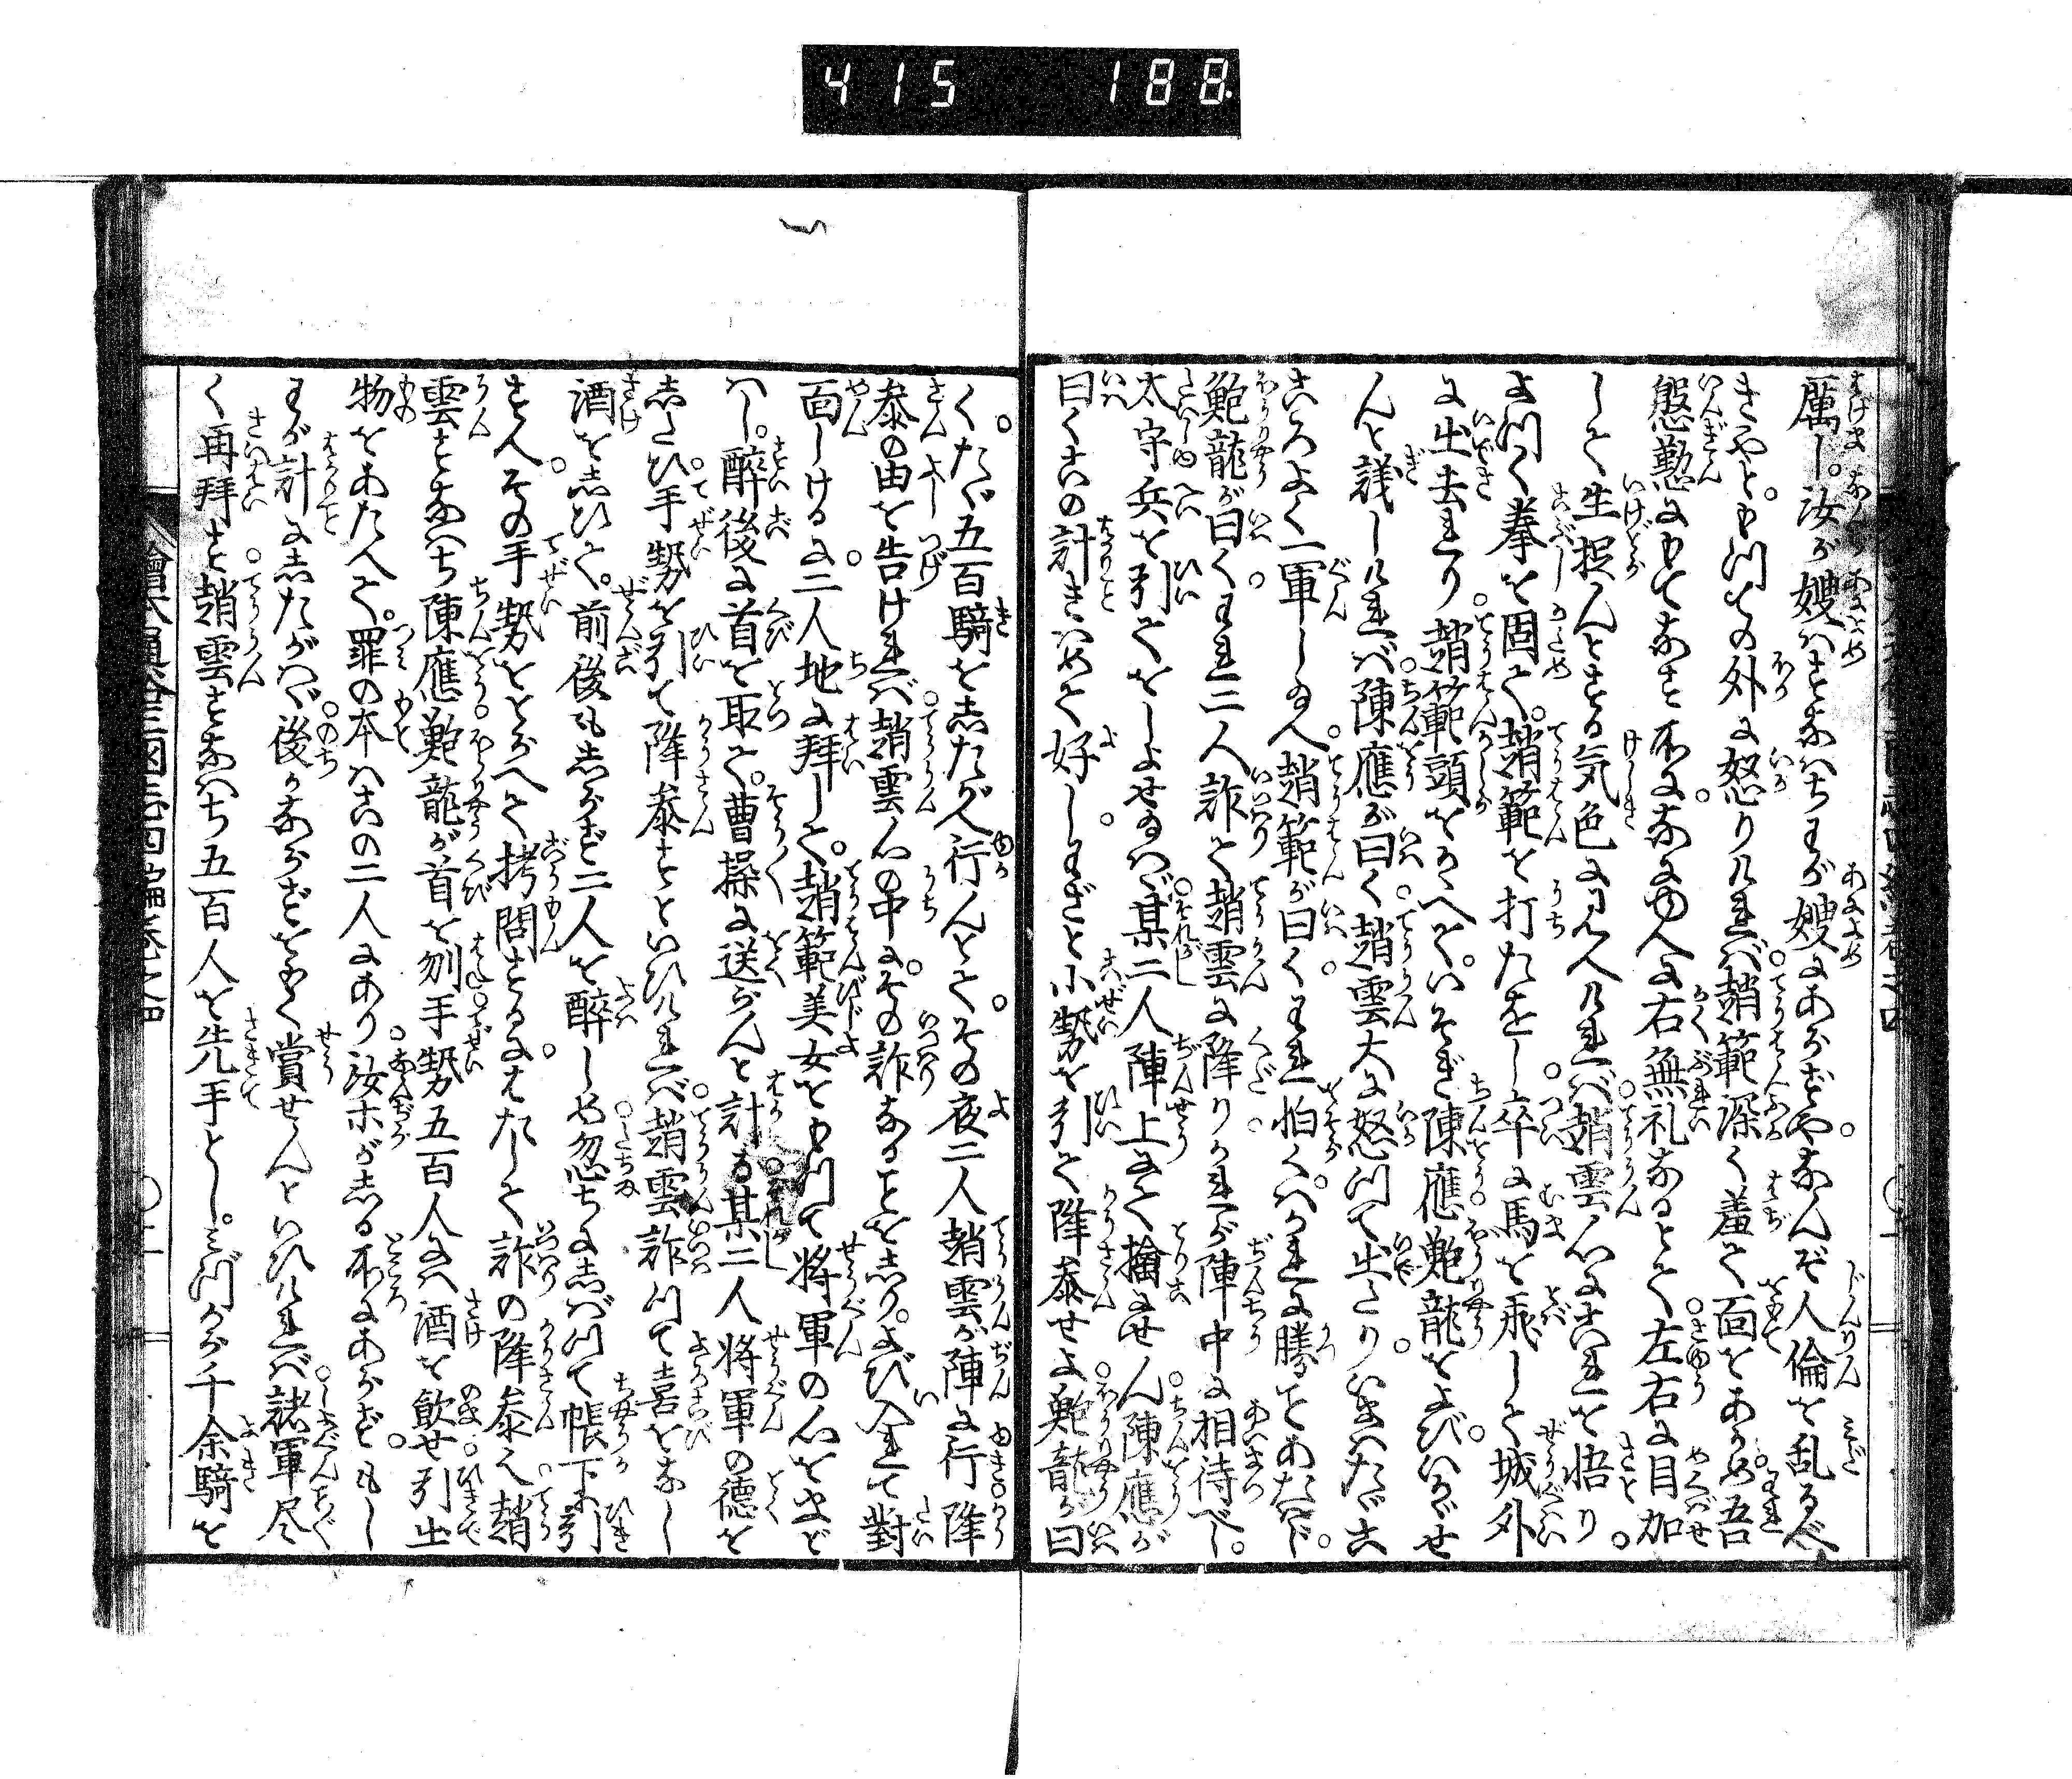 415 188
厲し。汝が嫂はすなはちわが嫂にあらずや。なんぞ人倫を乱るべ
きやと。もつての外に怒りければ。趙範深く羞て面をあかめ。吾
慇懃にもてなす所に。なにゆへに右無礼なるとて。左右に目加
して生捉んとする気色に見へければ。趙雲心にこれを悟り。
よつく拳を固て。趙範を打たをし。卒に馬を飛して城外
に出去れり。趙範頭をかへて。いそぎ陳應鮑龍をよび。いかゞせ
んと議しければ。陳應が曰く。趙雲大に怒つて出たり。いまたゞこ
ころよく一軍し給へ。趙範が曰く。われ怕くはかれに勝ことあたはじ。
鮑龍が曰く。われ二人詐て趙雲に降りかれが陣中に相待べし。
太守兵を引てをしよせ給はゞ。某二人陣上にて擒にせん。陳應が
曰くこの計きはめて好し。わざと小勢を引て降参せよ。鮑龍が曰
く。たゞ五百騎をしたがへ行んとて。その夜二人趙雲が陣に行降
参の由を告ければ。趙雲心の中に。その詐なることをしり。よび入れて對
面しけるに。二人地に拜して。趙範美女をもつて将軍の心をまど
はし。醉後に首を取て。曹操に送らんと計る。某二人将軍の徳を
したひ。手勢を引て降参すといひければ。趙雲詐つて喜をなし
酒をしひて。前後もしらず二人を醉しめ。忽ちにしばつて帳下に引
すへ。その手勢をとらへて拷問するに。はたして詐の降参え。趙
雲すなはち陳應鮑龍が首を刎。手勢五百人には酒を飲せ。引出
物をあたへて。罪の本はこの二人にあり。汝ホがしる所にあらず。もし
わが計にしたがはゞ後かならずをもく賞せんといひければ。諸軍尽
く再拜す。趙雲すなはち五百人を先手とし。みづから千余騎を
繪本通俗三國志四編卷之四